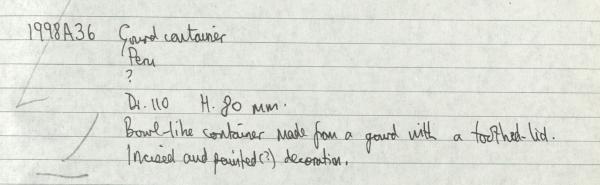 1998A36 Gourd container
Peru
?
Di. 110 H. 80 mm.
Bowl-like container made from a gourd with a toothed-lid.
Incised and painted(?) decoration.